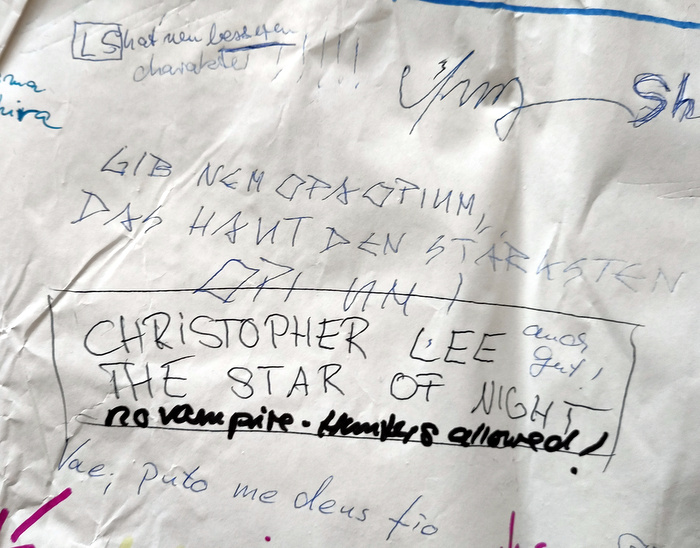 LS hat nen besseren
charakter!!!!!
ma
hira
Sh
GIB NEM OPA OPIUM,
DAS HAUT DEN STÄRKSTEN
OPI UM!
CHRISTOPHER LEE auch
gut!
THE STAR OF NIGHT
no vampire. allowed!
Vae, puto me deus fio